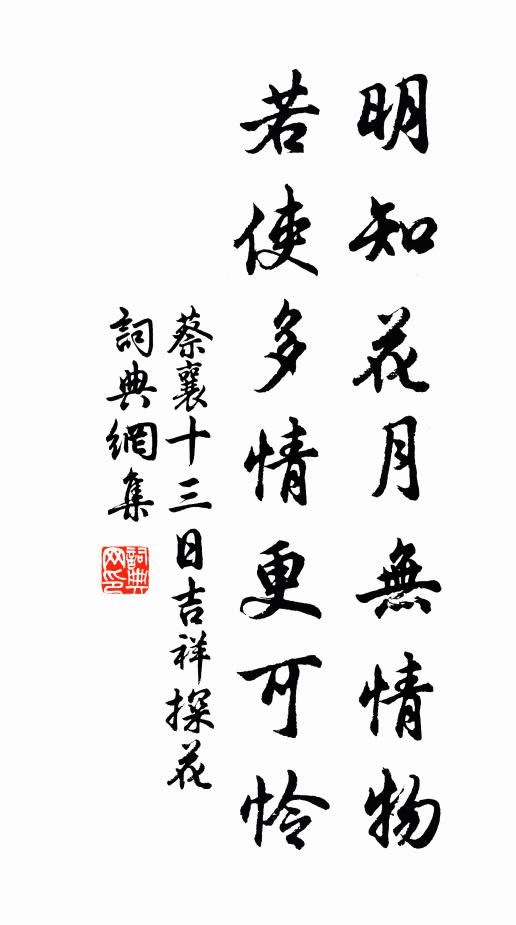 明知花月無情物
若使多情更可怜
蔡襄十三日吉祥探花
詞典網集
詞典网印